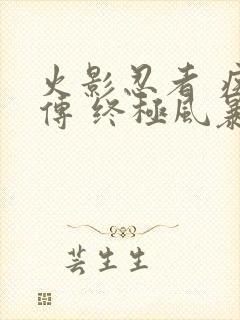 火影忍者
傳 終極風暴
芸生生